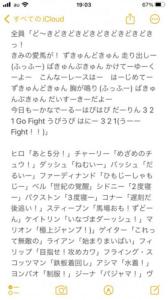 19:03
91
すべてのiCloud
全員「ど〜きどきどきどきどきどきどきどきっ！
きみの愛馬が！ ずきゅんどきゅん 走り出しー
(ふっふー) ばきゅんぶきゅん かけてーゆーく
ーよー こんなーレースはー はーじめてー
ずきゅんどきゅん 胸が鳴り (ふっふー) ばき
ゅんぶきゅん だいすーきーだよー
今日もーかなでーるー はぴはぴ だーりん 32
1 Go Fight うぴうぴ はにー 3 2 1(うーー
Fight！！)」
ヒロ「あと5分！」チャーリー「めざめのチ
ュウ！」グッシュ「ねむいー」パッシュ「だ
るいー」ファーディナンド「ひもじーしゃも
じー」ベル「世紀の覚醒」シドニー「2度寝
ー」パクストン「3度寝ー」コナー「遅刻だ
後追い！」スティーブン「馬場おも！ずどー
ん」ケイトリン「いなづまダーッシュ！」マ
リオン「極上ジャンプ！」ゲイター「これっ
て無敵の」ライアン「始まりまいぱい」フィ
リップ「目指せ！攻めカワ」フライング・ス
コッツマン「鉄板着回し」シン「水着！」
ヨンバオ「制服」ジーナ「パジャマ！」ヴ